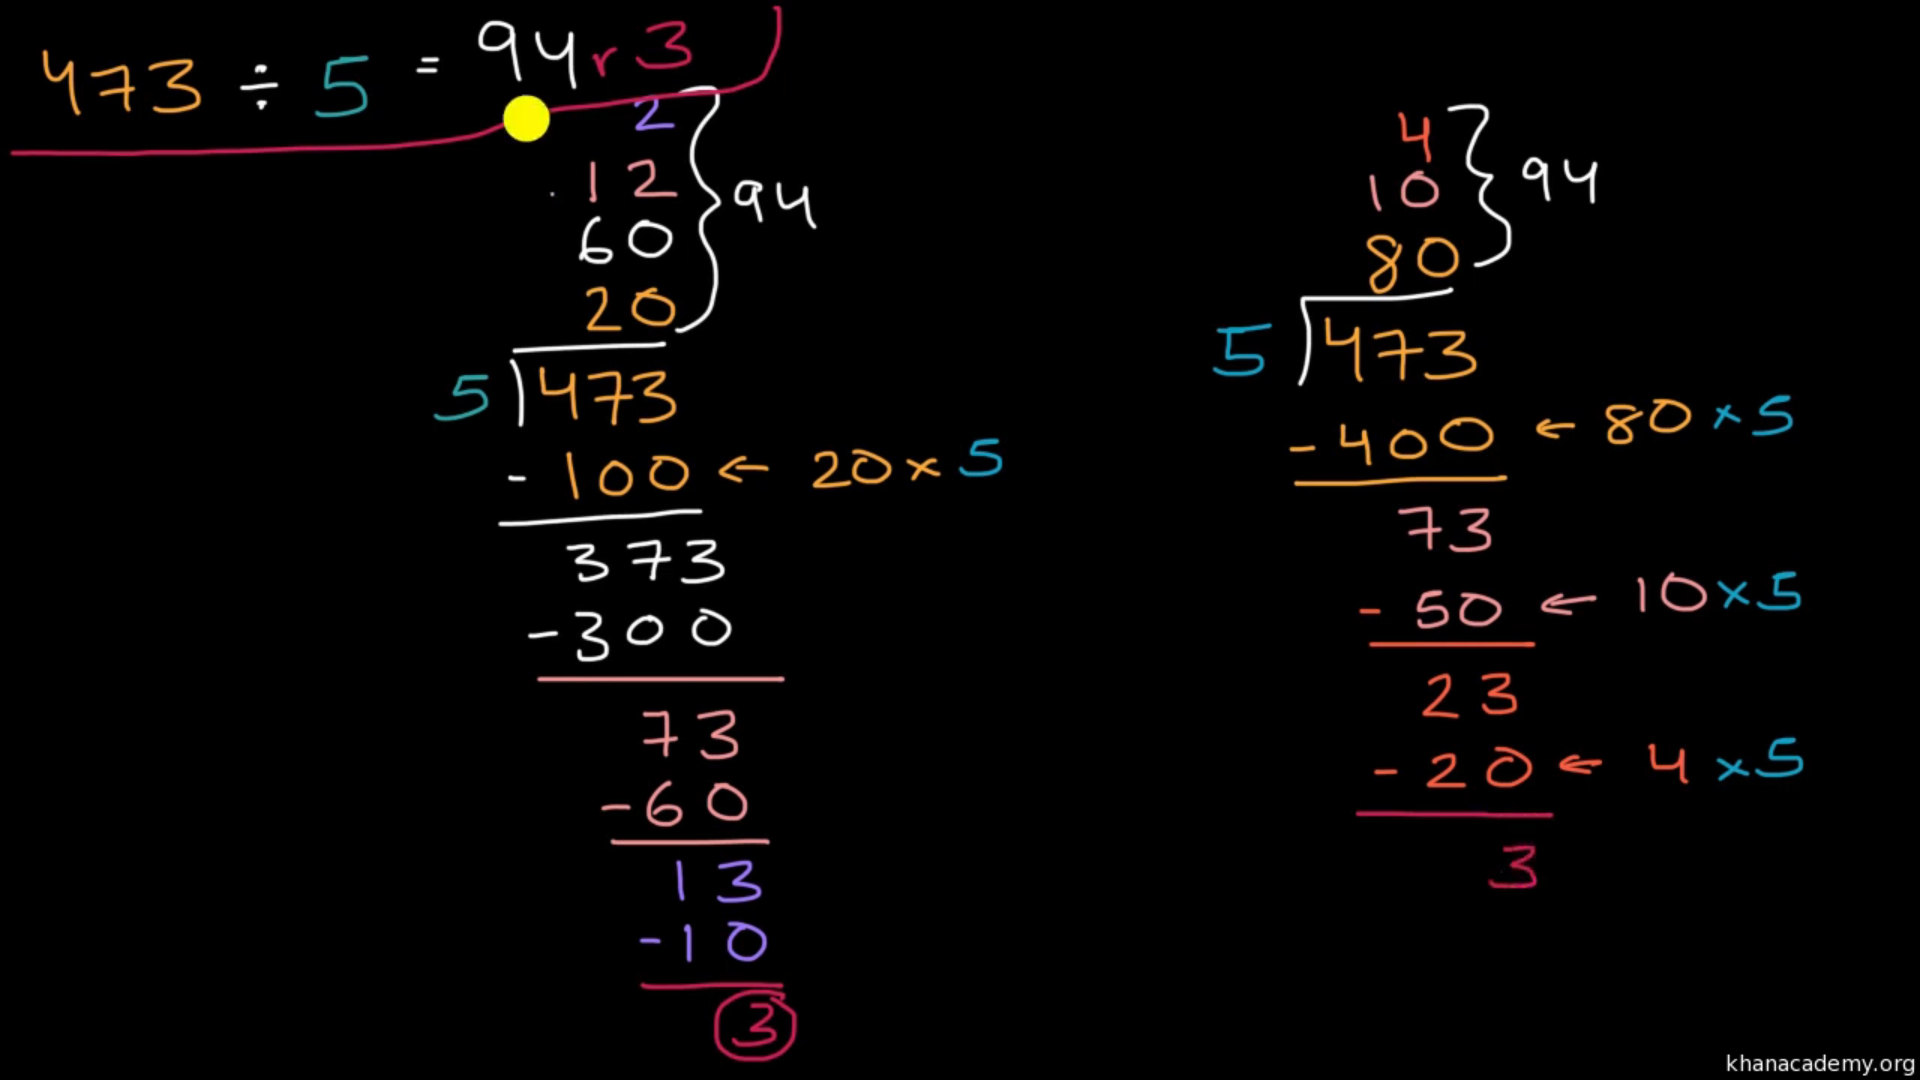 473 ÷ 5 = 94 r 3
2
12
60
20
94
5 473
- 100 ← 20 × 5
373
- 300
73
- 60
13
- 10
3
4
10
80
94
5 473
- 400 ← 80 × 5
73
- 50 ← 10 × 5
23
- 20 ← 4 × 5
3
khanacademy.org